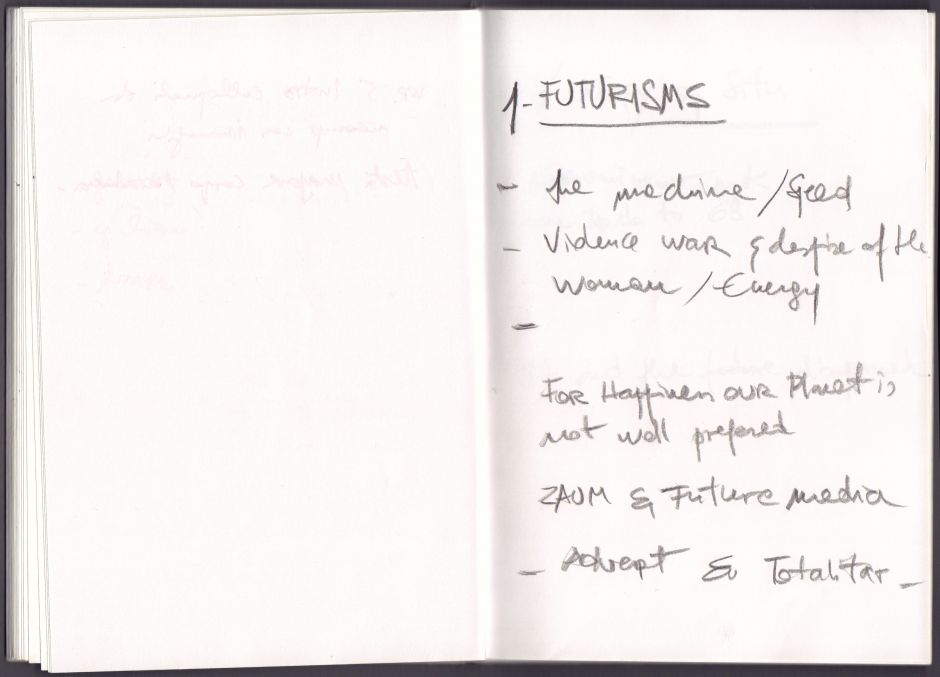 1- FUTURISMS
- the machine / Speed
- Violence war & despise of the
woman / Energy
-
FOR Happiness OUR Planet is
not well prepared
ZAUM & Future media
- & Totalitar -